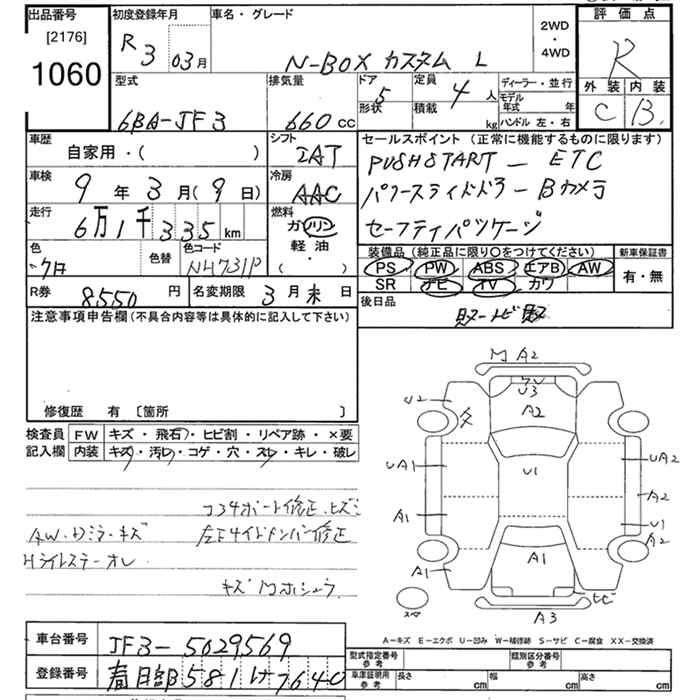 出品番号 初度登録年月 車名・グレード 2WD・4WD 評価点
[2176]
1060
R3 03月 N-BOX カスタム L R
外装 内装
C B
型式 排気量 ドア 形状 定員 積載 ディーラー・並行
6BA-JF3 660cc 5 4人 kg モデル年式 年
ハンドル 左・右
車歴 シフト セールスポイント(正常に機能するものに限ります)
自家用・( ) IAT PUSHSTART - ETC
車検 冷房
9年3月(9日) AAC パワースライドドアーBカメラ
走行 燃料
6万1千335km ガソリン セーフティパッケージ
軽油
( ・ )
色 色替 色コード 装備品(純正品に限り○をつけてください) 新車保証書
クロ NH731P PS PW ABS エアB AW 有・無
SR ナビ TV カワ
R券 8550円 名変期限 3月末日 後日品
注意事項申告欄(不具合内容等は具体的に記入して下さい)
修復歴 有 〔箇所 〕
検査員 FW キズ・飛石・ヒビ割・リペア跡・×要
記入欄 内装 キズ・汚レ・コゲ・穴・スレ・キレ・破レ
M A2
U3
U2 A2
UA1 U1 UA2
A2
A1 U1
A2
A1 A1
ヒビ
スペア A3
AW・Dミラ-キズ
A-キズ E-エクボ U-凹み W-補修跡 S-サビ C-腐食 XX-交換済
車台番号 JF3-5029569
登録番号 春日部581 け7640
型式指定番号 参考 類別区分番号 参考
車庫証明用 参考 長さ cm 幅 cm 高さ cm